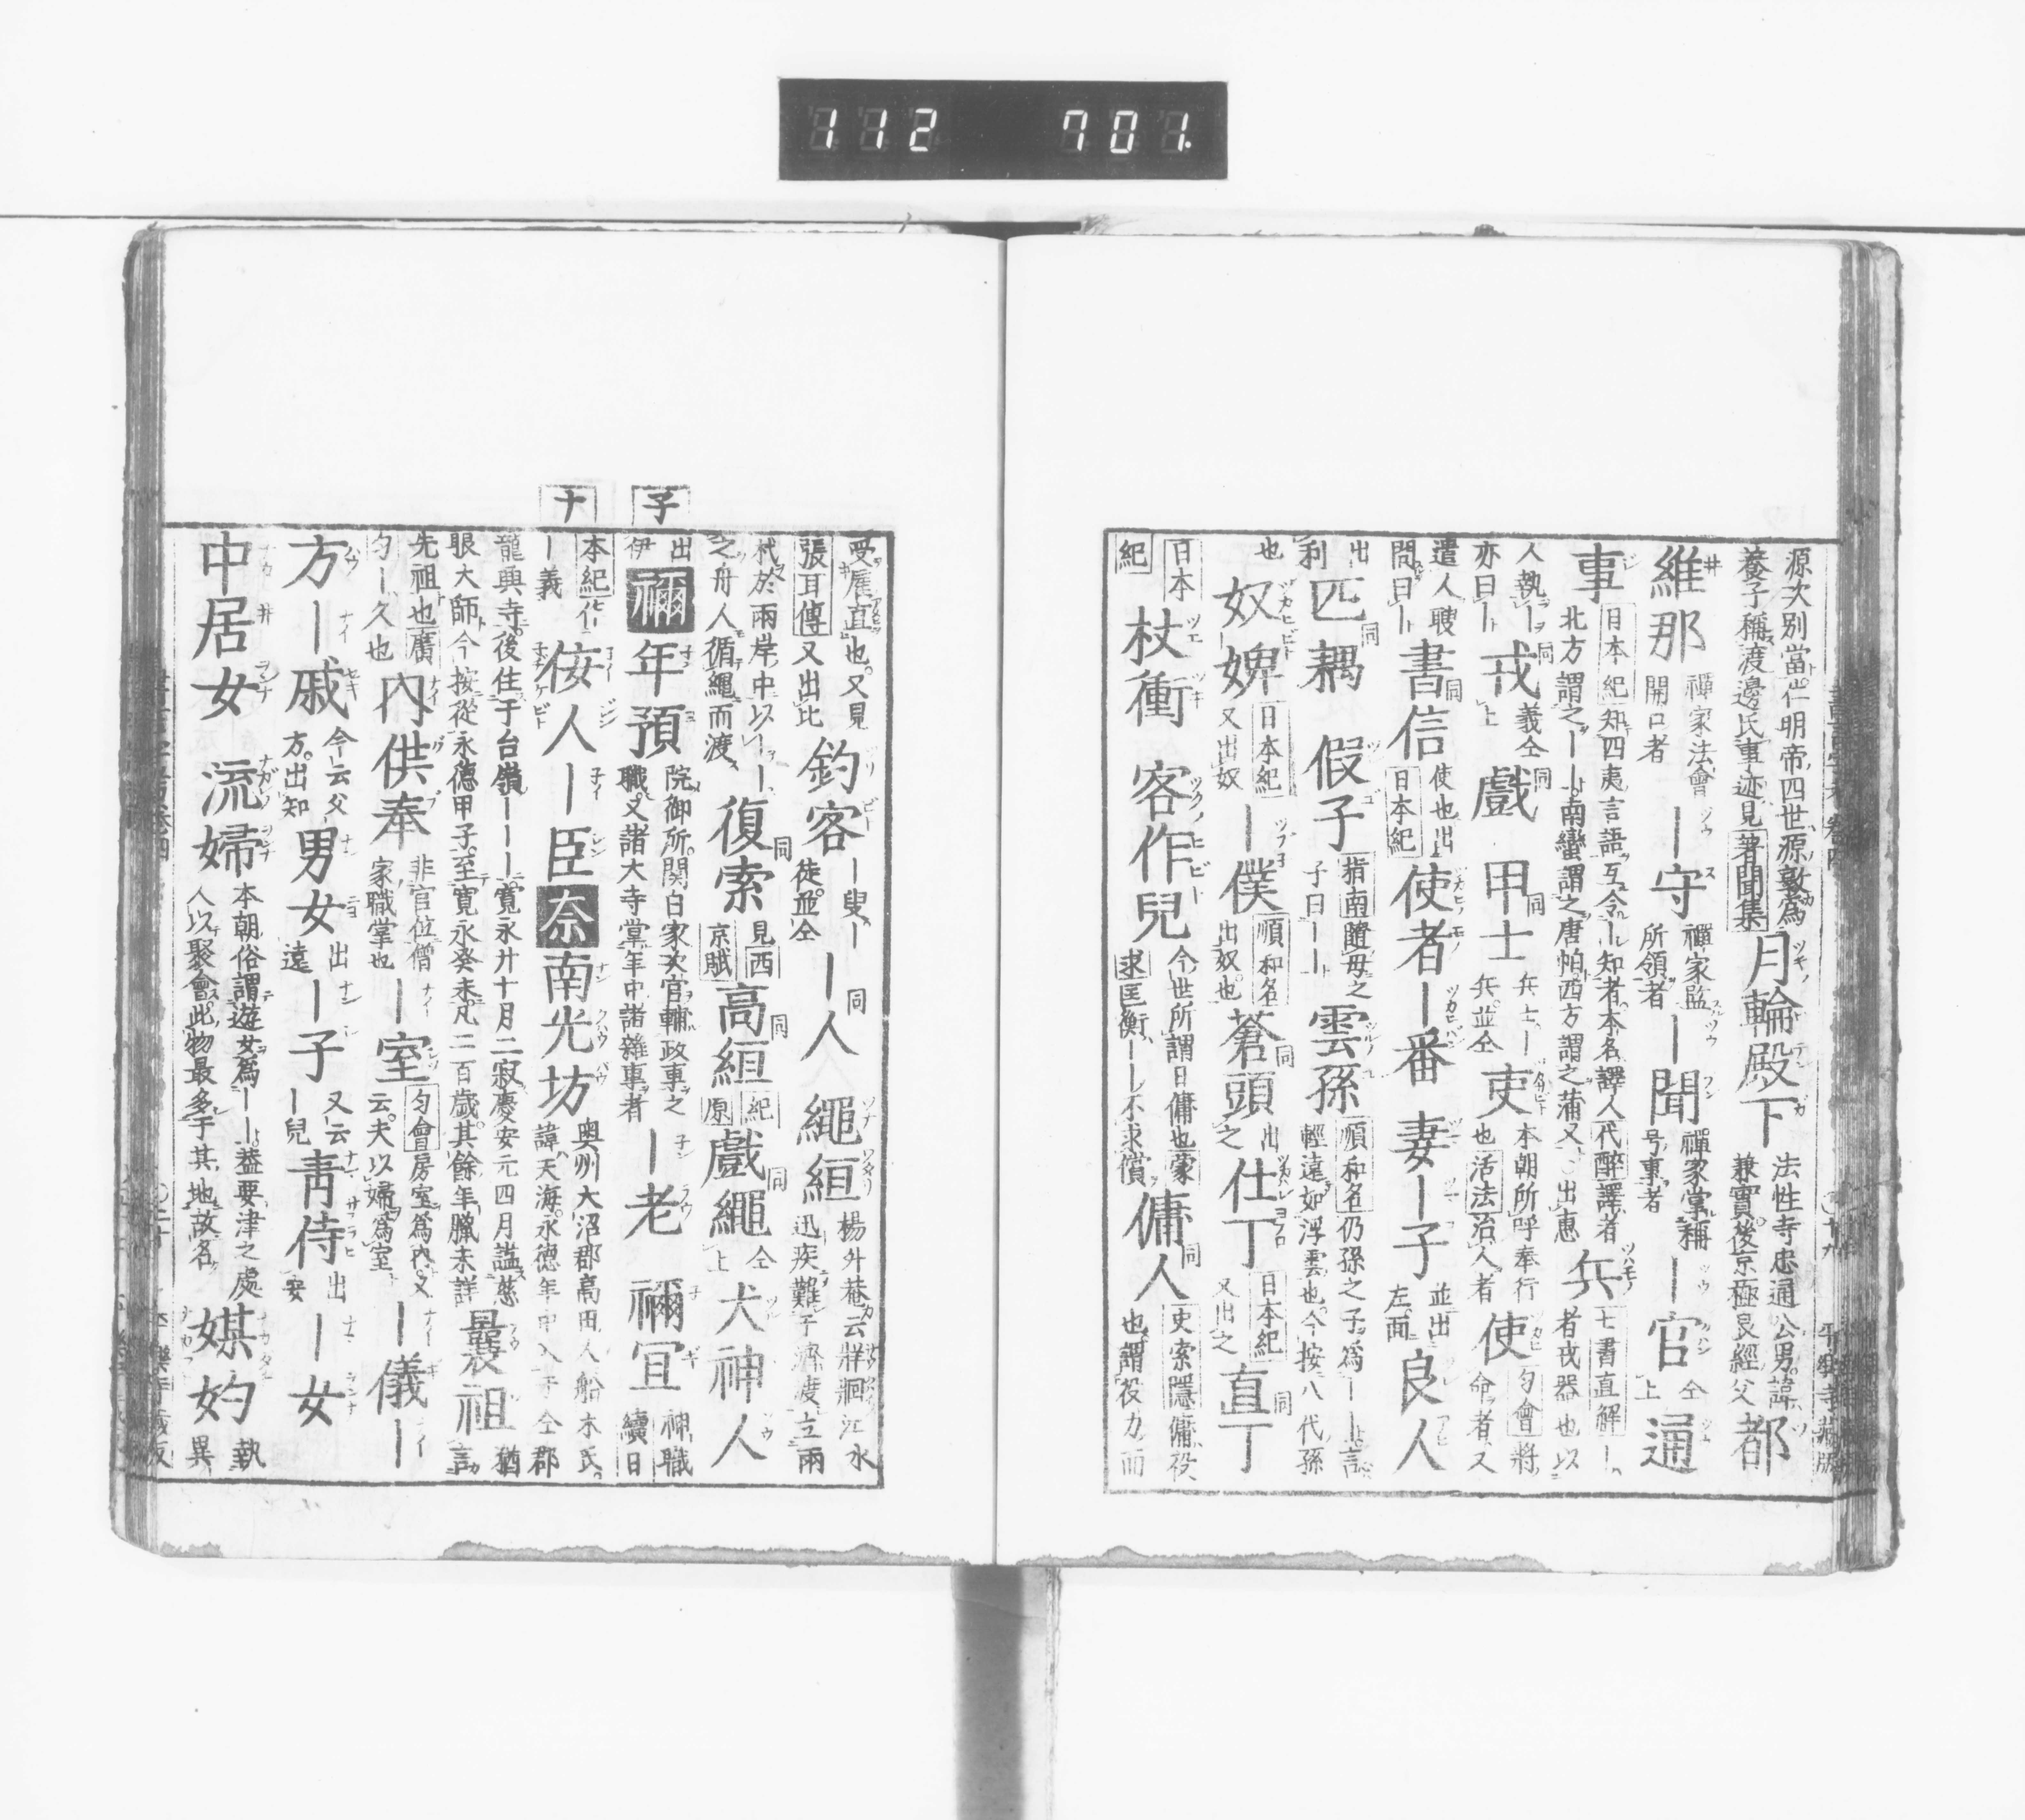 112 701.
源次別當仁明帝四世源敦爲
養子稱渡邊氏事迹見著聞集
月輪殿下
法性寺忠通公男諱
兼實後京極良經父
都
維那
禪家法會
開口者
｜守
禪家監
所領者
｜聞
禪家掌稱
号事者
｜官
仝
上
通
事
日本紀知四夷言語互令｜知者本名譯人代醉譯者
北方謂之｜｜南蠻謂之唐帕西方謂之蒲叉出惠
兵
七書直解｜
者戎器也以
人執｜
亦曰｜
戎
同
義仝
上
戲
同
甲士
同
兵士｜
兵並仝
吏
本朝所呼奉行
也活法治人者
使
匀會將
命者又
遣人聘
問曰｜
書信
同
使也出
日本紀
使者
｜番
妻｜子
並出
左面
良人
出
利
匹耦
同
假子
指南隨母之
子曰｜｜
雲孫
順和名仍孫之子爲｜｜言
輕遠如浮雲也今按八代孫
也
奴婢
日本紀
又出奴
｜僕
順和名
出奴也
蒼頭
同
出
之
仕丁
日本紀
又出之
直丁
同
日本
紀
杖衝
客作兒
今世所謂日傭也蒙
求匡衡｜｜不求償
傭人
同
史索隱傭役
也謂役力而
受雇直也又見
張耳傳又出比
釣客
｜叟｜
徒並仝
｜人
同
繩絙
楊外菴云牂牁江水
迅疾難于濟渡立兩
杙於兩岸中以｜｜
之舟人循繩而渡
復索
同
見西
京賦
高絙
同
紀
原
戲繩
同
仝
上
犬神人
子
出
伊
禰
年預
院御所関白家次官輔政事之
職又諸大寺掌年中諸雜事者
｜老
禰宜
神職
續日
十
本紀作
｜義
侫人
｜臣
奈
南光坊
奥州大沼郡高田人船木氏
諱天海永德年中入于仝郡
龍興寺後住于台嶺｜｜｜寛永廾十月二寂慶安元四月謚慈
眼大師今按從永德甲子至寛永癸未凡二百歳其餘年臘未詳
曩祖
猶
言
先祖也廣
匀｜久也
内供奉
非官位僧
家職掌也
｜室
匀會房室爲内又
云夫以婦爲室
｜儀｜
方｜戚
今云父
方出知
男女
出
遠
｜子
又云
｜兒
青侍
出
安
｜女
中居女
流婦
本朝俗謂遊女爲｜｜蓋要津之處
人以聚會此物最多于其地故名
媒妁
執
異